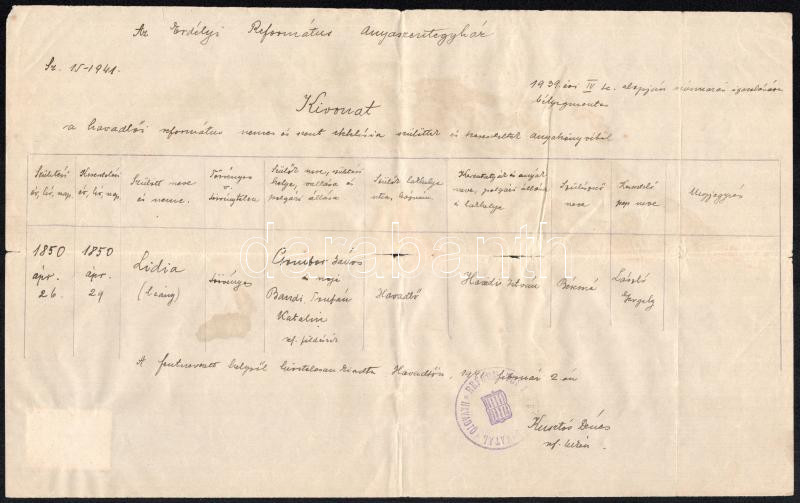 Az Erdélyi Református Anyaszentegyház
Sz. 15-1941.
1939. évi IV tc. alapján származás igazolására
bélyegmentes
Kivonat
a havadtői református nemes és szent ekklézsia születtek és kereszteltek anyakönyvéből
Születési év, hó, nap.
Keresztelési év, hó, nap.
Szülött neve és neme.
Törvényes v. törvénytelen
Szülők neve, születési helye, vallása és polgári állása
Szülők lakhelye utca, házszám
Keresztatyák és anyák neve, polgári állása és lakhelye
Szülésznő neve
Keresztelő pap neve
Megjegyzés
1850 ápr. 26.
1850 ápr. 29
Lidia (leány)
törvényes
Csombor János és neje Bandi Katalin ref. földműves
Havadtő
Havadi István
László Gergely
A fentnevezett helyről hivatalosan kiadta Havadtőn, 1941 február 2-án
Kusztós Dénes
ref. lelkész
darabanth